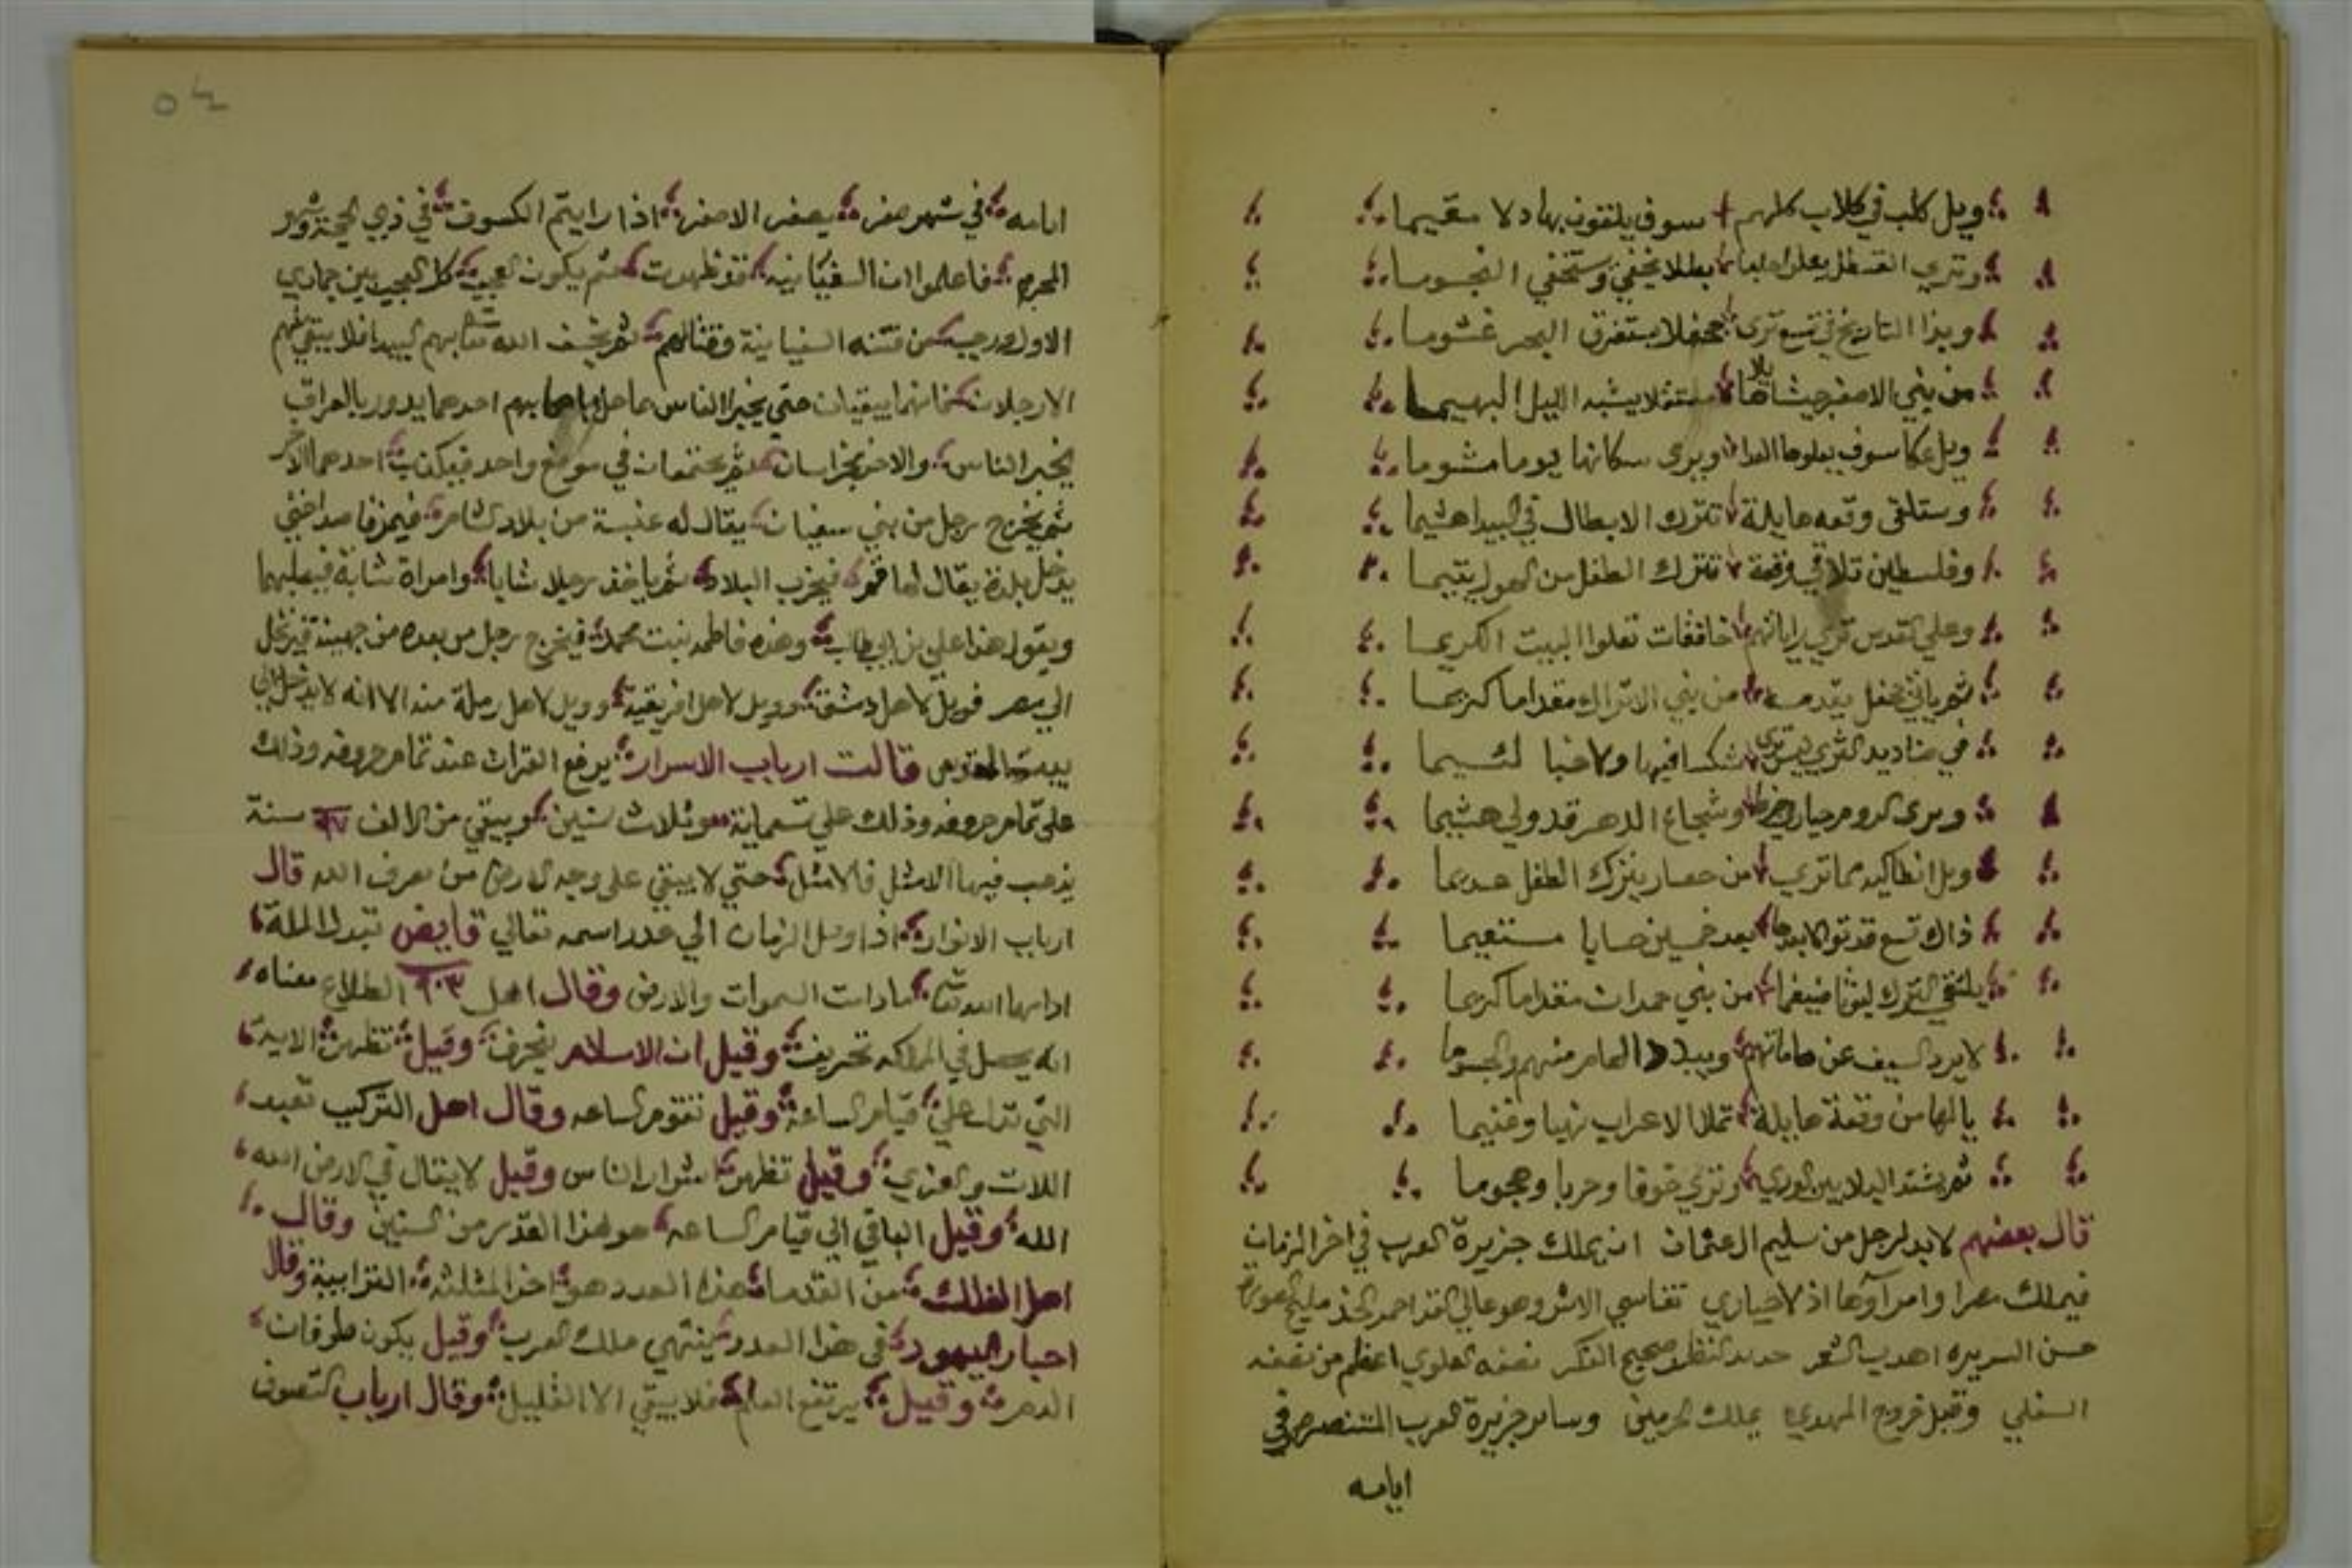 ويل كلب في كلاب كلهم سوف يلقون بهاد لا مقيما
وتري القسطل يعلو بطلا يخفي وستخفي النجوما
وبذا التاريخ في تسع ترى جحفلا يستغرق البحر غشوما
من بني الاصفر جيشا يشبه الليل البهيما
ويل عكا سوف يعلوها العدا ويرى سكانها يوما مشوما
وستلقى وقعه هايلة تترك الابطال في البيدا هشيما
وفلسطين تلاقي وقعة تترك الطفل من الهول يتيما
وعلي القدس تري راياتهم خافقات تعلوا البيت الكريما
ثم ياتي جحفل يقدمه من بني الاتراك مقداما كريما
في صناديد شكسا فيها ولا خبا لئيما
ويرى الروم وشجاع الدهر قد ولي هشيما
ويل انطاكيه مما تري من حصار يترك الطفل عديما
ذاك تسع قد تولا بعدها بعد خمسين مستقيما
يلتقي الترك ليوثا ضيغما من بني حمدان مقداما كريما
لا يرد السيف عن هاماتهم ويبيد الهام منهم والجسوما
يا لها من وقعة هايلة تملا الاعراب نهبا وغنيما
ثم يشتد البلا بين الوري وتري خوفا وحربا وهجوما
قال بعضهم لا بد لرجل من سليم ال عثمان ان يملك جزيرة العرب في اخر الزمان
فيملك مصرا
حسن السريره اهدب الشعر حديد النظر صحيح الفكر نصفه العلوي اعظم من نصفه
السفلي وقبل خروج المهدي يملك الحرمين وساير جزيرة العرب في
ايامه
٥٤
ايامه في شهر صفر يصفر الاصفر اذا رايتم الكسوف في ذي الحجة وشهر
المحرم فاعلموا ان السفيانيه قد ظهرت ثم يكون العجب كل العجب بين جمادي
الاول ورجب من فتنه السفيانية وقتالهم ثم يخسف الله تعالى بهم البيدا فلا يبقي منهم
الا رجلان فانهما يبقيان حتى يخبر الناس بما حل باصحابهم احدهما يدور بالعراق
يخبر الناس والاخر بخراسان ثم يجتمعان في موضع واحد فيكذب احدهما الاخر
ثم يخرج رجل من بني سفيان يقال له عنبسة من بلاد الشام حتي
يدخل بلدة يقال لها فيخرب البلاد ثم ياخذ رجلا شابا وامراة شابة فيصلبهما
ويقول هذا علي بن ابي طالب وهذه فاطمه بنت محمد فيخرج رجل من بعده من جهينة فيدخل
الي مصر فويل لاهل دمشق وويل لاهل افريقية وويل لاهل رملة منه الا انه لا يدخل الي
بيت المقدس قالت ارباب الاسرار يرفع القران عند تمام حروفه وذلك
على تمام حروفه وذلك علي تسماية وثلاث ستين ويبقي من الالف ٩٧ سنة
يذهب فيها الامثل فالامثل حتي لا يبقي على وجه الارض من يعرف الله قال
ارباب الانوار اذا وصل الزمان الي عدد اسمه تعالي قابض تبدل الملة
ادامها الله تعالى ما دامت السموات والارض وقال اهل ٩٠٣ الطلاع معناه
انه يحصل في المملكه تحريف وقيل ان الاسلام ينحرف وقيل تظهر الاية
التي تدل علي قيام الساعة وقيل تقوم الساعه وقال اهل التركيب تعبد
اللات والعزي وقيل تظهر اشرار الناس وقيل لا يقال في الارض الله
الله وقيل الباقي الي قيام الساعه هو هذا القدر من السنين وقال
اهل الفلك من القدما هذا العدد هو اخر المثلثه الترابية وقال
احبار اليهود في هذا العدد ينتهي ملك العرب وقيل يكون طوفان
الدهر وقيل يرتفع العلم فلا يبقي الا القليل وقال ارباب التصوف